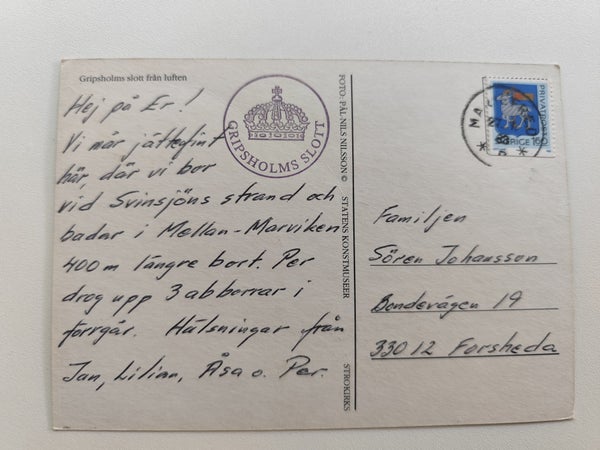 Gripsholms slott från luften
Hej på Er!
Vi mår jättefint
här, där vi bor
vid Svinsjöns strand och
badar i Mellan-Marviken
400 m längre bort. Per
drog upp 3 abborrar i
förrgår. Hälsningar från
Jan, Lilian, Åsa o. Per.
GRIPSHOLMS SLOTT
FOTO: PÅL-NILS NILSSON ©
STATENS KONSTMUSEER
STROKIRKS
PRIVATPOST
SVERIGE 160
Familjen
Sören Johansson
Bondevägen 19
330 12 Forsheda